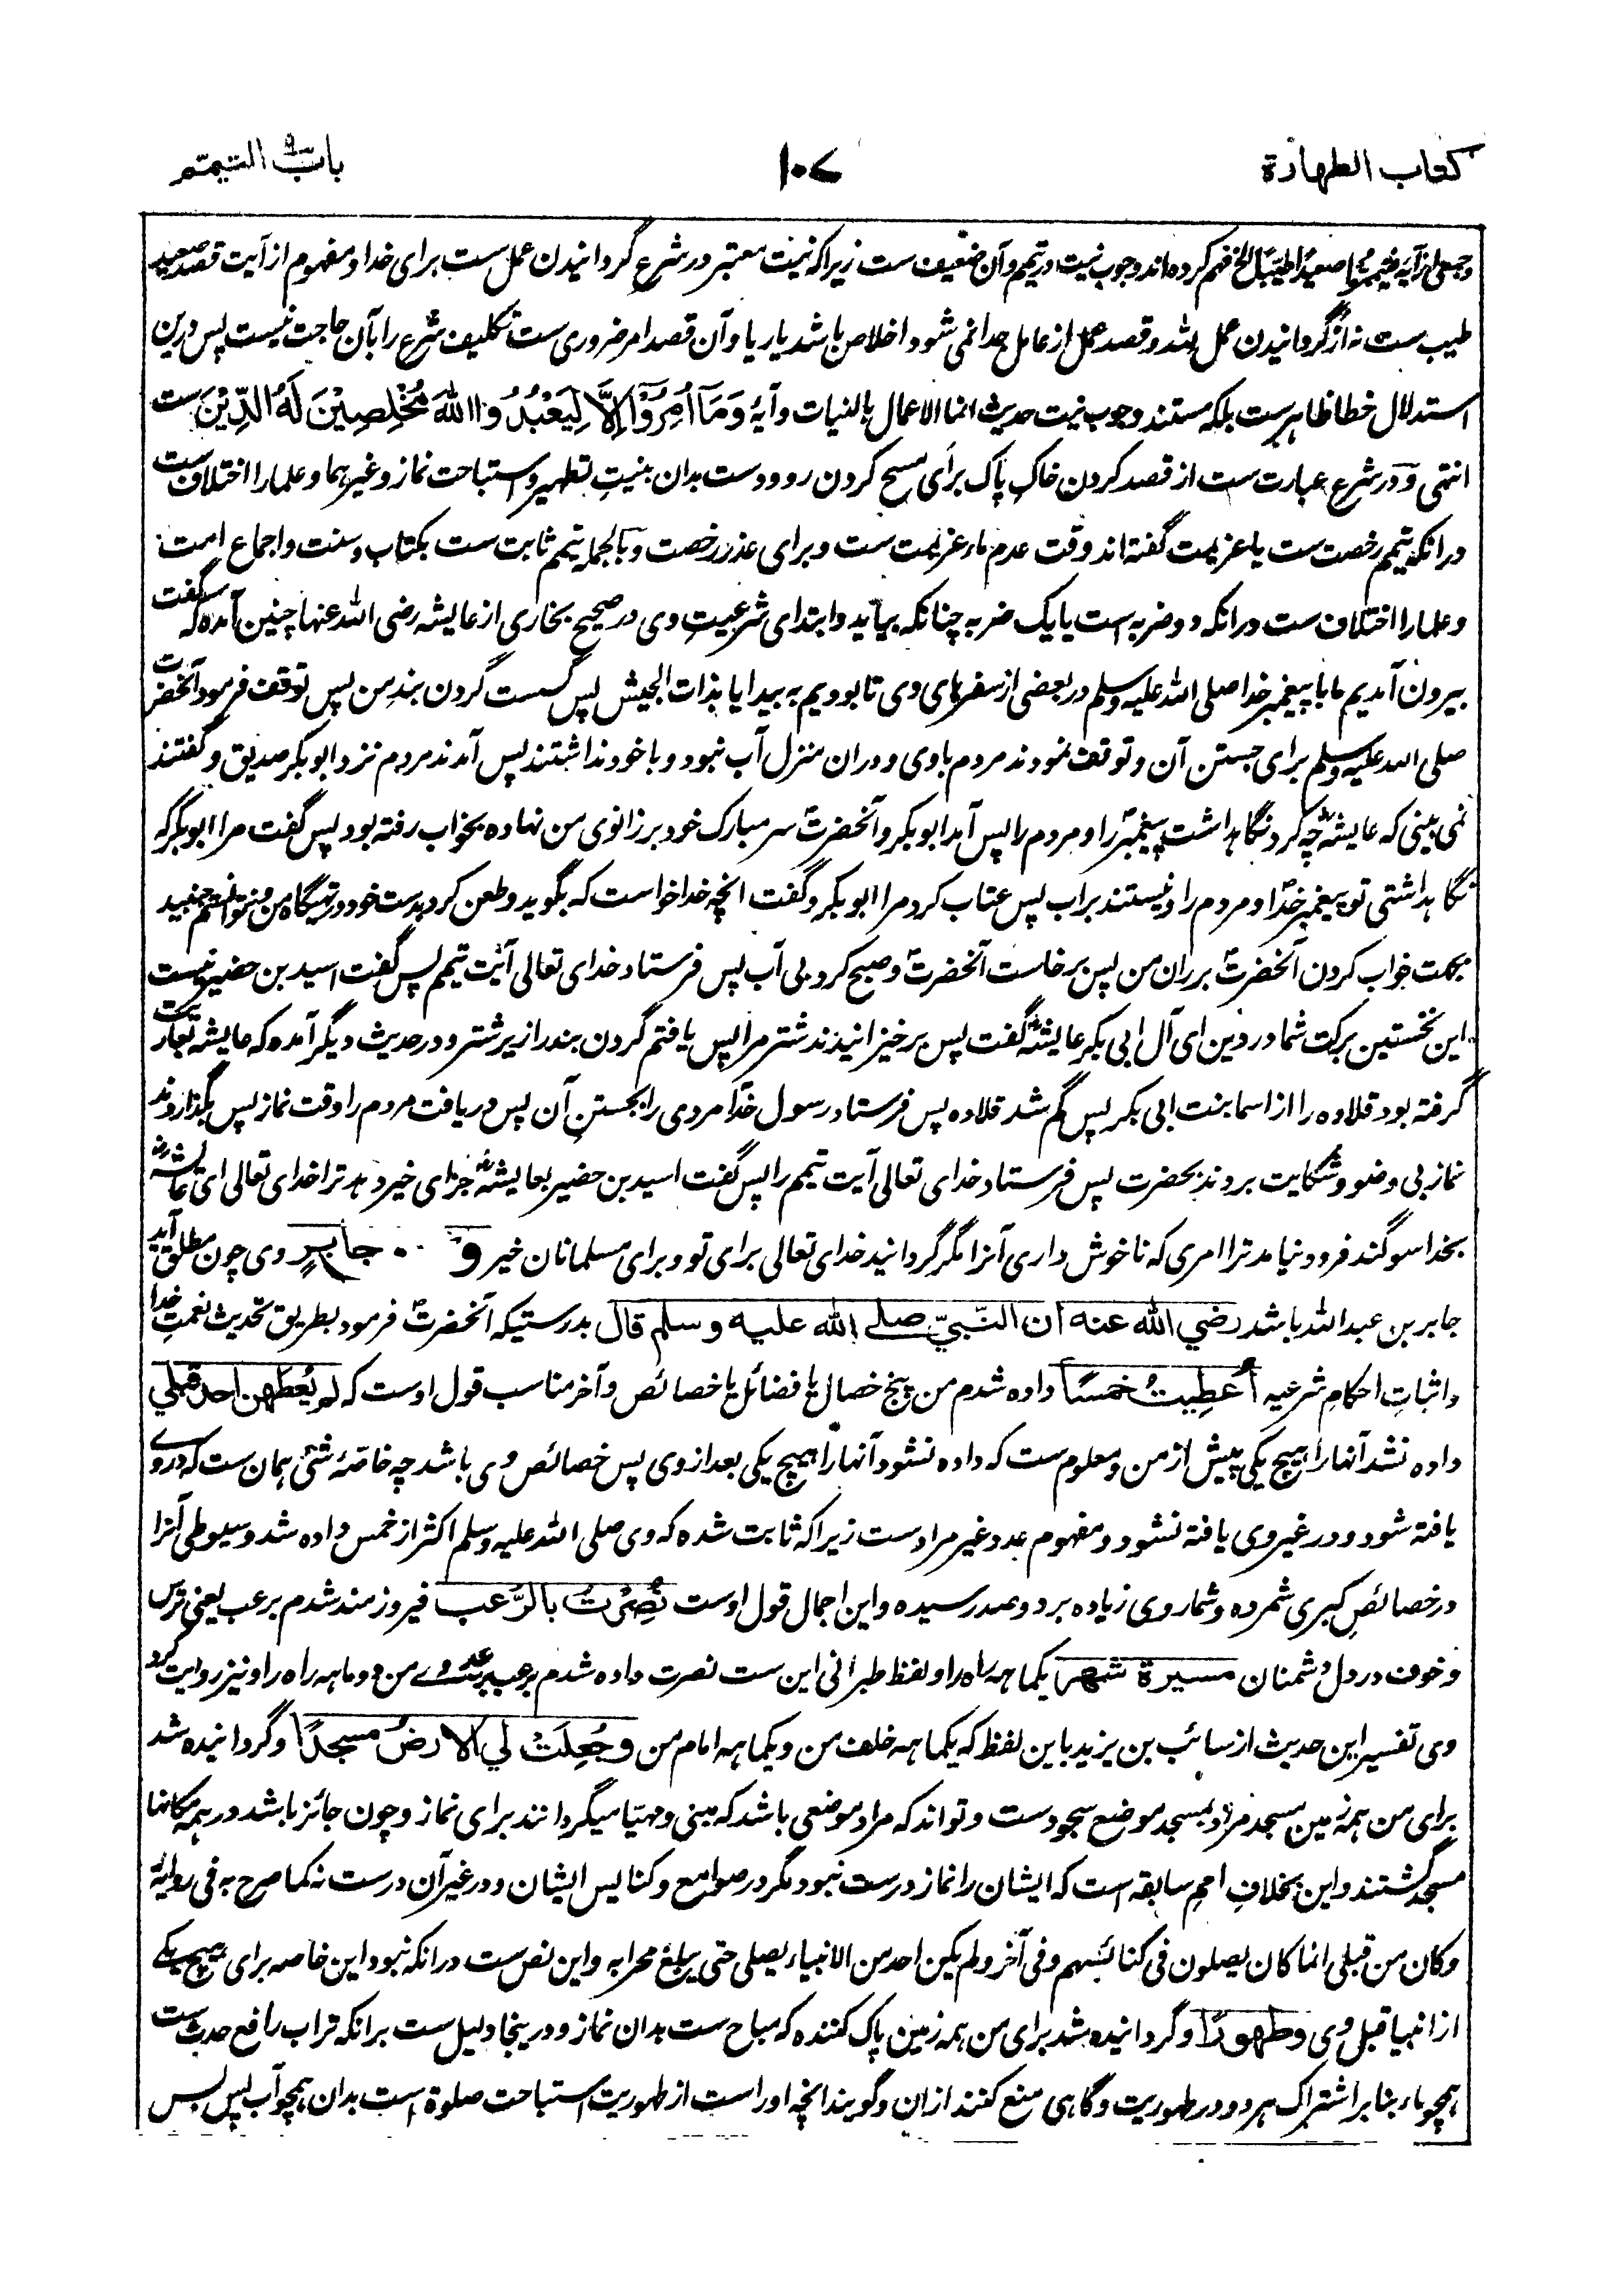 کتاب الطهارة
۱۰۷
باب التیمم
وجمعی از آیه فتیمموا صعیدا طیبا الخ فهم کرده‌اند وجوب نیت در تیمم و آن ضعیف ست زیراکه نیت معتبر در شرع گردانیدن عمل ست برای خدا و مفهوم از آیت قصد صعید
طیب ست نه از گردانیدن عمل لله و قصد عمل از عامل جدا نمی شود اخلاص باشد یا ریا و آن قصد امر ضروری ست تکلیف شرع را بآن حاجت نیست پس درین
استدلال خطا ظاهرست بلکه مستند وجوب نیت حدیث انما الاعمال بالنیات و آیهٔ وَمَآ اُمِرُوْٓا اِلَّا لِيَعْبُدُوا اللهَ مُخْلِصِيْنَ لَهُ الدِّيْنَ ست
انتهی و در شرع عبارت ست از قصد کردن خاکِ پاک برای مسح کردن رو و دست بدان بنیتِ تطهیر و استباحت نماز و غیرهما و علما را اختلاف ست
درانکه تیمم رخصت ست یا عزیمت گفته اند وقت عدم ماء عزیمت ست و برای عذر رخصت و بالجمله تیمم ثابت ست بکتاب و سنت و اجماع امت
و علما را اختلاف ست درانکه دو ضربه است یا یک ضربه چنانکه بیاید و ابتدای شرعیتِ وی در صحیح بخاری از عایشه رضی الله عنها چنین آمده که گفت
بیرون آمدیم ما با پیغمبر خدا صلی الله علیه وسلم در بعضی از سفرهای وی تا بودیم به بیدا یا بذات الجیش پس گسست گردن بندِ من پس توقف فرمود آنحضرت
صلی الله علیه وسلم برای جستن آن و توقف نمودند مردم باوی و دران منزل آب نبود و با خود نداشتند پس آمدند مردم نزد ابوبکر صدیق و گفتند
نمی بینی که عایشه چه کرد نگاهداشت پیغمبر را و مردم را پس آمد ابوبکر و آنحضرت سر مبارک خود بر زانوی من نهاده بخواب رفته بود پس گفت مرا ابوبکر که
نگاهداشتی تو پیغمبر خدا و مردم را و نیستند بر آب پس عتاب کرد مرا ابوبکر و گفت انچه خدا خواست که بگوید و طعن کرد بدست خود در تهیگاه من و نتوانستم جنبید
بجهت خواب کردن آنحضرت بر ران من پس برخاست آنحضرت و صبح کرد بی آب پس فرستاد خدای تعالی آیت تیمم پس گفت اسید بن حضیر نیست
این نخستین برکت شما در دین ای آل ابی بکر عایشه گفت پس برخیزانیدند شتر مرا پس یافتم گردن بند را زیر شتر و در حدیث دیگر آمده که عایشه بعاریت
گرفته بود قلاده را از اسما بنت ابی بکر پس گم شد قلاده پس فرستاد رسول خدا مردی را بجستن آن پس دریافت مردم را وقت نماز پس بگذاردند
نماز بی وضو و شکایت بردند بحضرت پس فرستاد خدای تعالی آیت تیمم را پس گفت اسید بن حضیر بعایشه جزای خیر دهد ترا خدای تعالی ای عائشه
بخدا سوگند فرود نیامد ترا امری که ناخوش داری آنرا مگر گردانید خدای تعالی برای تو و برای مسلمانان خیر و جابرٍ وی چون مطلق آید
جابر بن عبدالله باشد رضي الله عنه ان النّبيّ صلے الله عليه وسلم قال بدرستیکه آنحضرت فرمود بطریق تحدیث نعمت خدا
و اثبات احکام شرعیه اُعطِيتُ خمسًا داده شدم من پنج خصال یا فضائل یا خصائص و آخر مناسب قول اوست که لو يُعطَهن احد قبلي
داده نشد آنها را هیچ یکی پیش از من و معلوم ست که داده نشود آنها را هیچ یکی بعد از وی پس خصائص وی باشد چه خاصّهٔ شئی همان ست که در وے
یافته شود و در غیر وی یافته نشود و مفهوم عدد غیر مراد ست زیراکه ثابت شده که وی صلی الله علیه وسلم اکثر از خمس داده شد و سیوطی آنرا
در خصائصِ کبری شمرده و شمار وی زیاده بر دو صد رسیده و این اجمال قول اوست نُصِرْتُ بالرُّعب فیروزمند شدم برعب یعنی ترس
و خوف در دل دشمنان مسيرة شهر یکماهه راه را و لفظ طبرانی این ست نصرت داده شدم برعب بر عدوے من دو ماهه راه را و نیز روایت کرد
وی تفسیر این حدیث از سائب بن یزید باین لفظ که یکماهه خلف من و یکماهه امام من وجُعِلَتْ لي الارضُ مسجدًا و گردانیده شد
برای من همه زمین مسجد مراد بمسجد موضع سجودست و تواند که مراد موضعی باشد که مبنی و مهیا میگردانند برای نماز و چون جائز باشد در همه مکانها
مسجد گشتند و این بخلاف امم سابقه است که ایشان را نماز درست نبود مگر در صوامع و کنایس ایشان و در غیر آن درست نه کما صرح به فی روایة
وکان من قبلی انما کان یصلون فی کنائسهم وفی آخر ولم یکن احد من الانبیاء یصلی حتی یبلغ محرابه و این نص ست درانکه نبود این خاصه برای هیچ یکے
از انبیا قبل وی وطهورًا و گردانیده شد برای من همه زمین پاک کننده که مباح ست بدان نماز و درینجا دلیل ست برانکه تراب رافع حدث ست
همچو ماء بنا بر اشتراک هر دو در طهوریت و گاهی منع کنند ازان و گویند انچه اوراست از طهوریت استباحت صلوة است بدان همچو آب پس پس